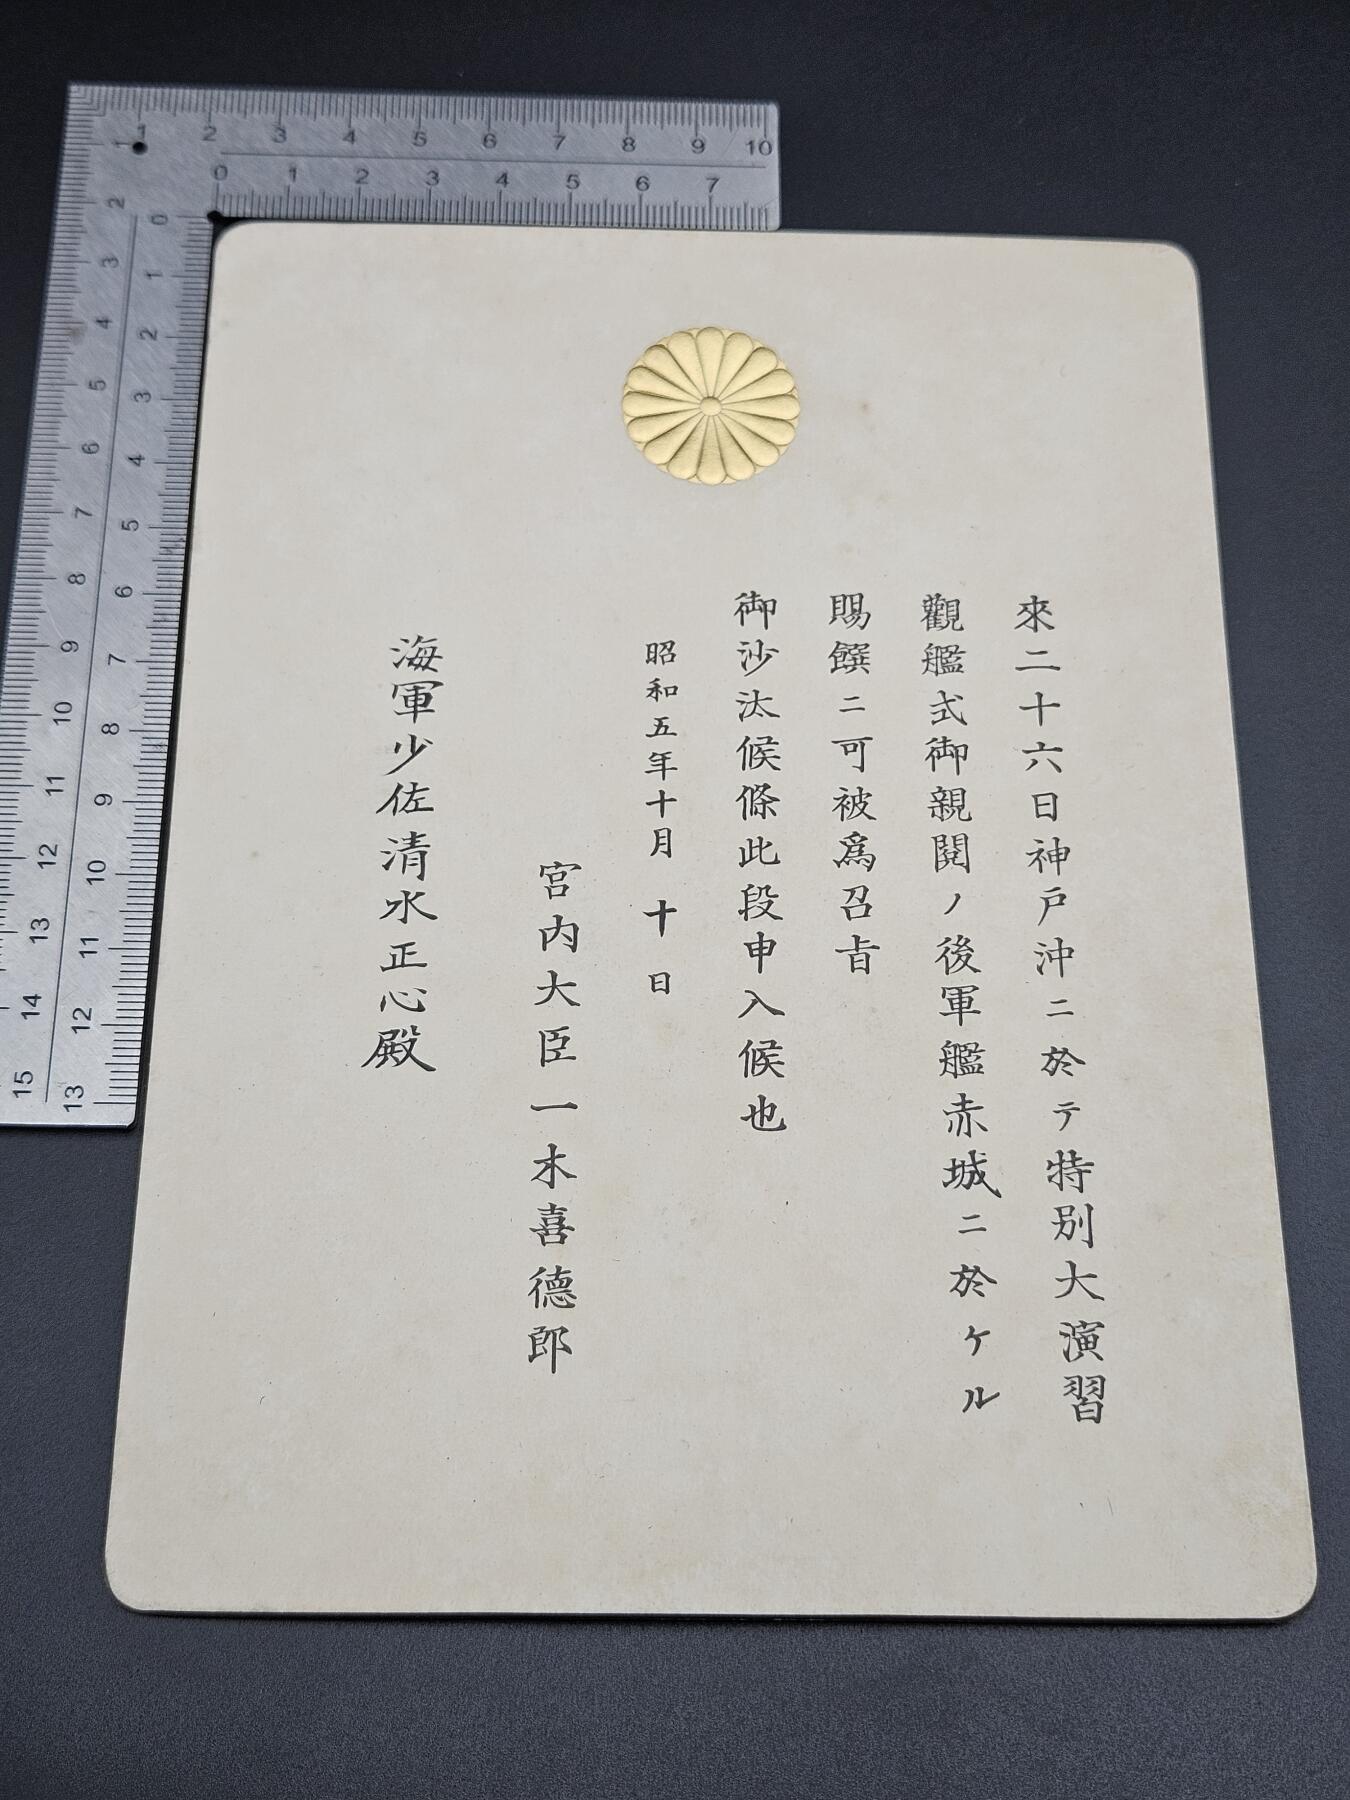 1 2 3 4 5 6 7 8 9 10
0 1 2 3 4 5 6 7
1 2 3 4 5 6 7 8 9 10 11 12 13 14 15
0 1 2 3 4 5 6 7 8 9 10 11 12 13
來二十六日神戸沖ニ於テ特別大演習
觀艦式御親閲ノ後軍艦赤城ニ於ケル
賜饌ニ可被爲召旨
御沙汰候條此段申入候也
昭和五年十月十日
宮内大臣一木喜德郎
海軍少佐清水正心殿